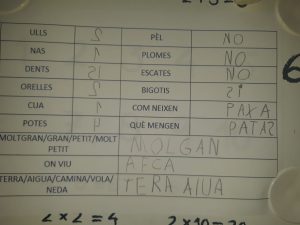 ULLS 2 PÈL NO
NAS 1 PLOMES NO
DENTS 15 ESCATES NO
ORELLES 2 BIGOTIS SI
CUA 1 COM NEIXEN PAXA
POTES 4 QUÈ MENGEN PATAS
MOLTGRAN/GRAN/PETIT/MOLT PETIT MOLGAN
ON VIU AFCA
TERRA/AIGUA/CAMINA/VOLA/NEDA TERA AIUA
2 x 2 = 4